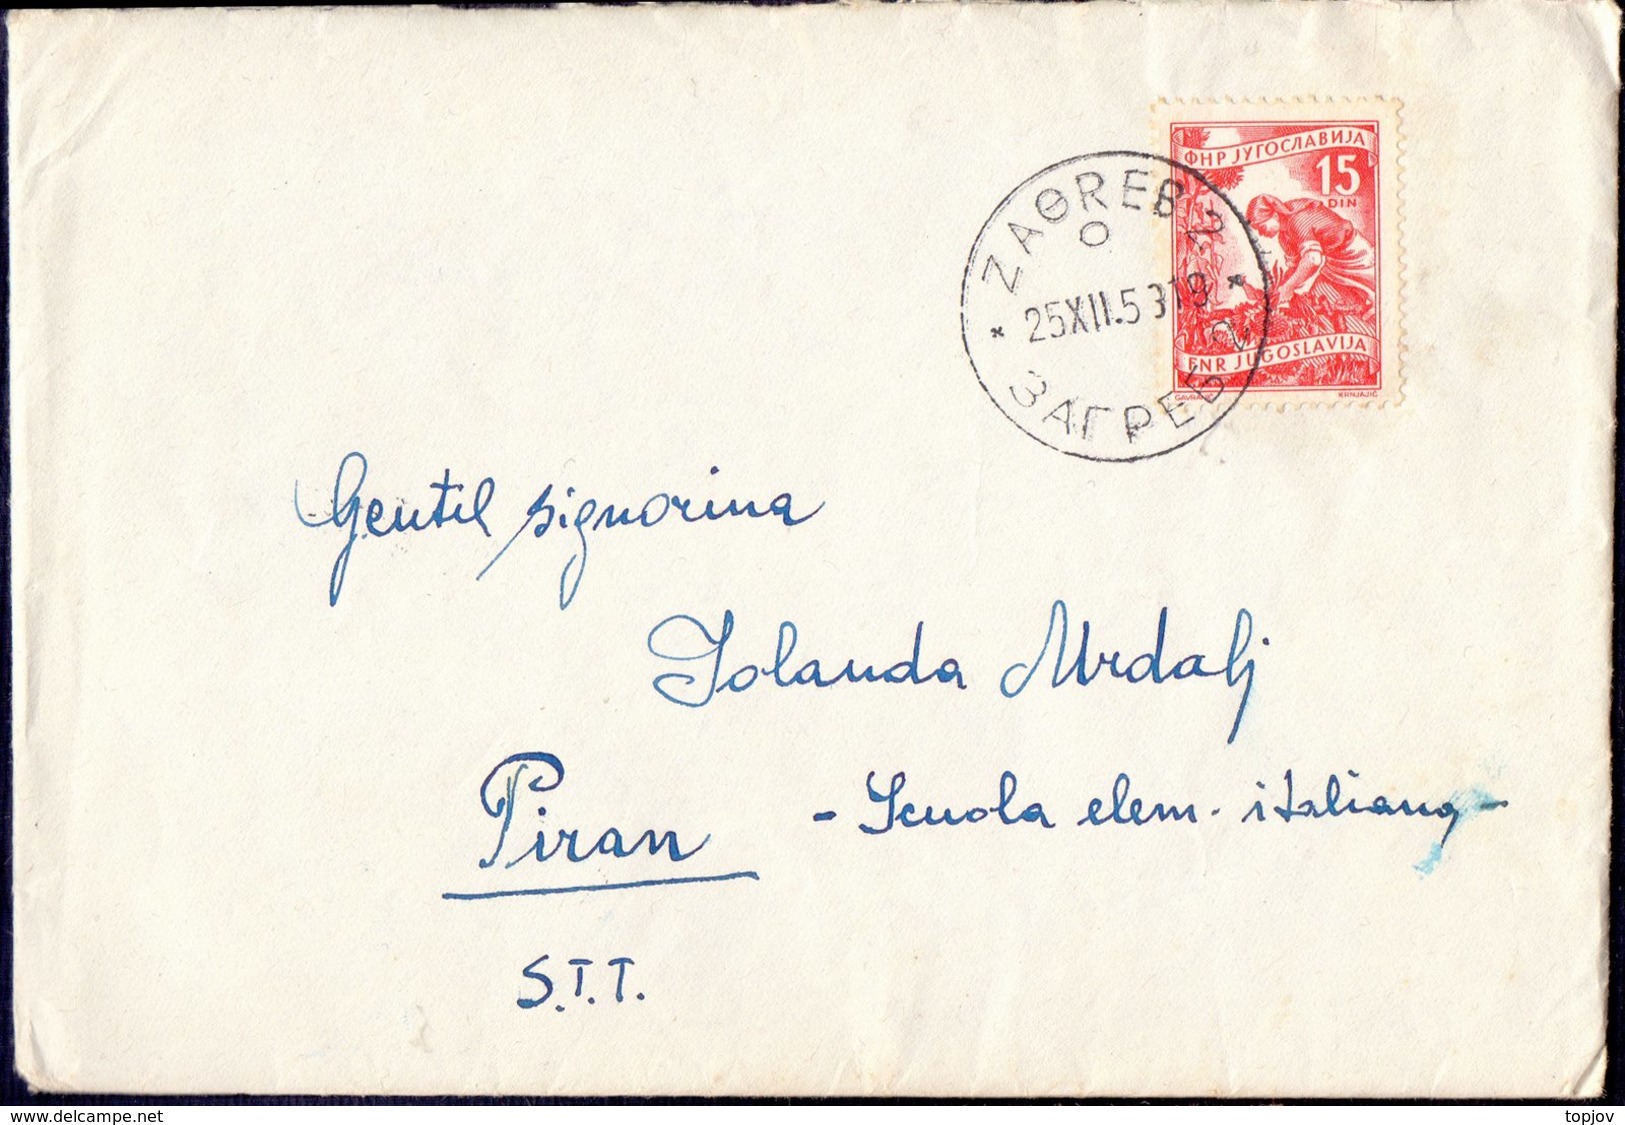 ФНР ЈУГОСЛАВИЈА
15
DIN
FNR JUGOSLAVIJA
KRNJAJIĆ
ZAGREB 2
25XII.53 19
ЗАГРЕБ 2
Gentil signorina
Jolanda Mrdalj
Piran - Scuola elem. italiana -
S.T.T.
delcampe.net
topjov